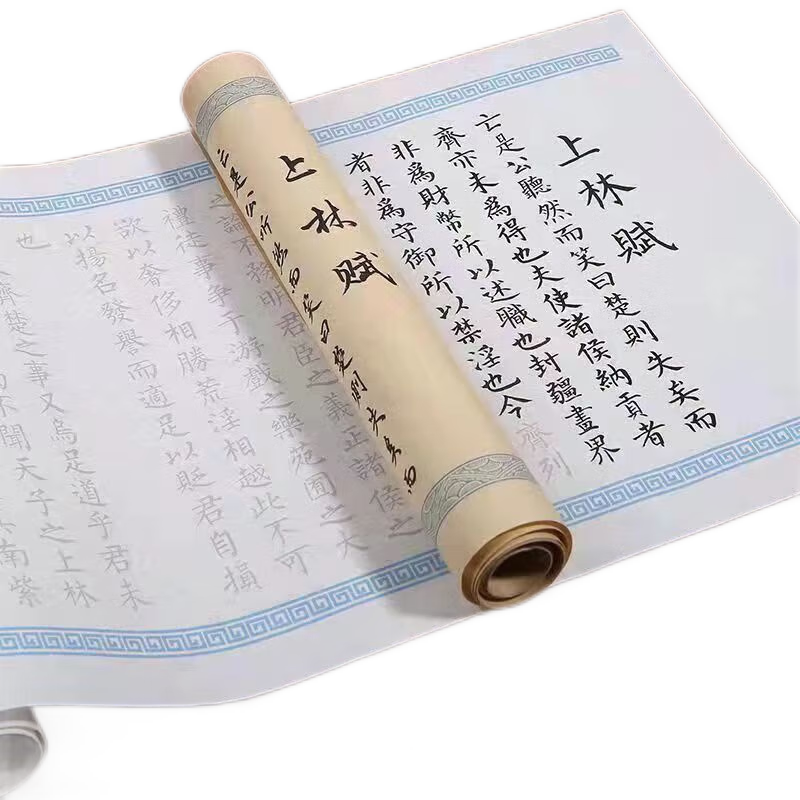 上林賦
亡是公聽然而笑曰楚則失矣而
齊亦未爲得也夫使諸侯納貢者
非爲財幣所以述職也封疆畫界
者非爲守御所以禁淫也今齊列
上林賦
亡是公听然而笑曰楚則失矣而
之論不務明君臣之義正諸侯之
禮徒事爭于游戲之樂苑囿之大
欲以奢侈相勝荒淫相越此不可
以揚名發譽而適足以貶君自損
也
齊楚之事又烏足道乎君未
不聞天子之上林
南紫